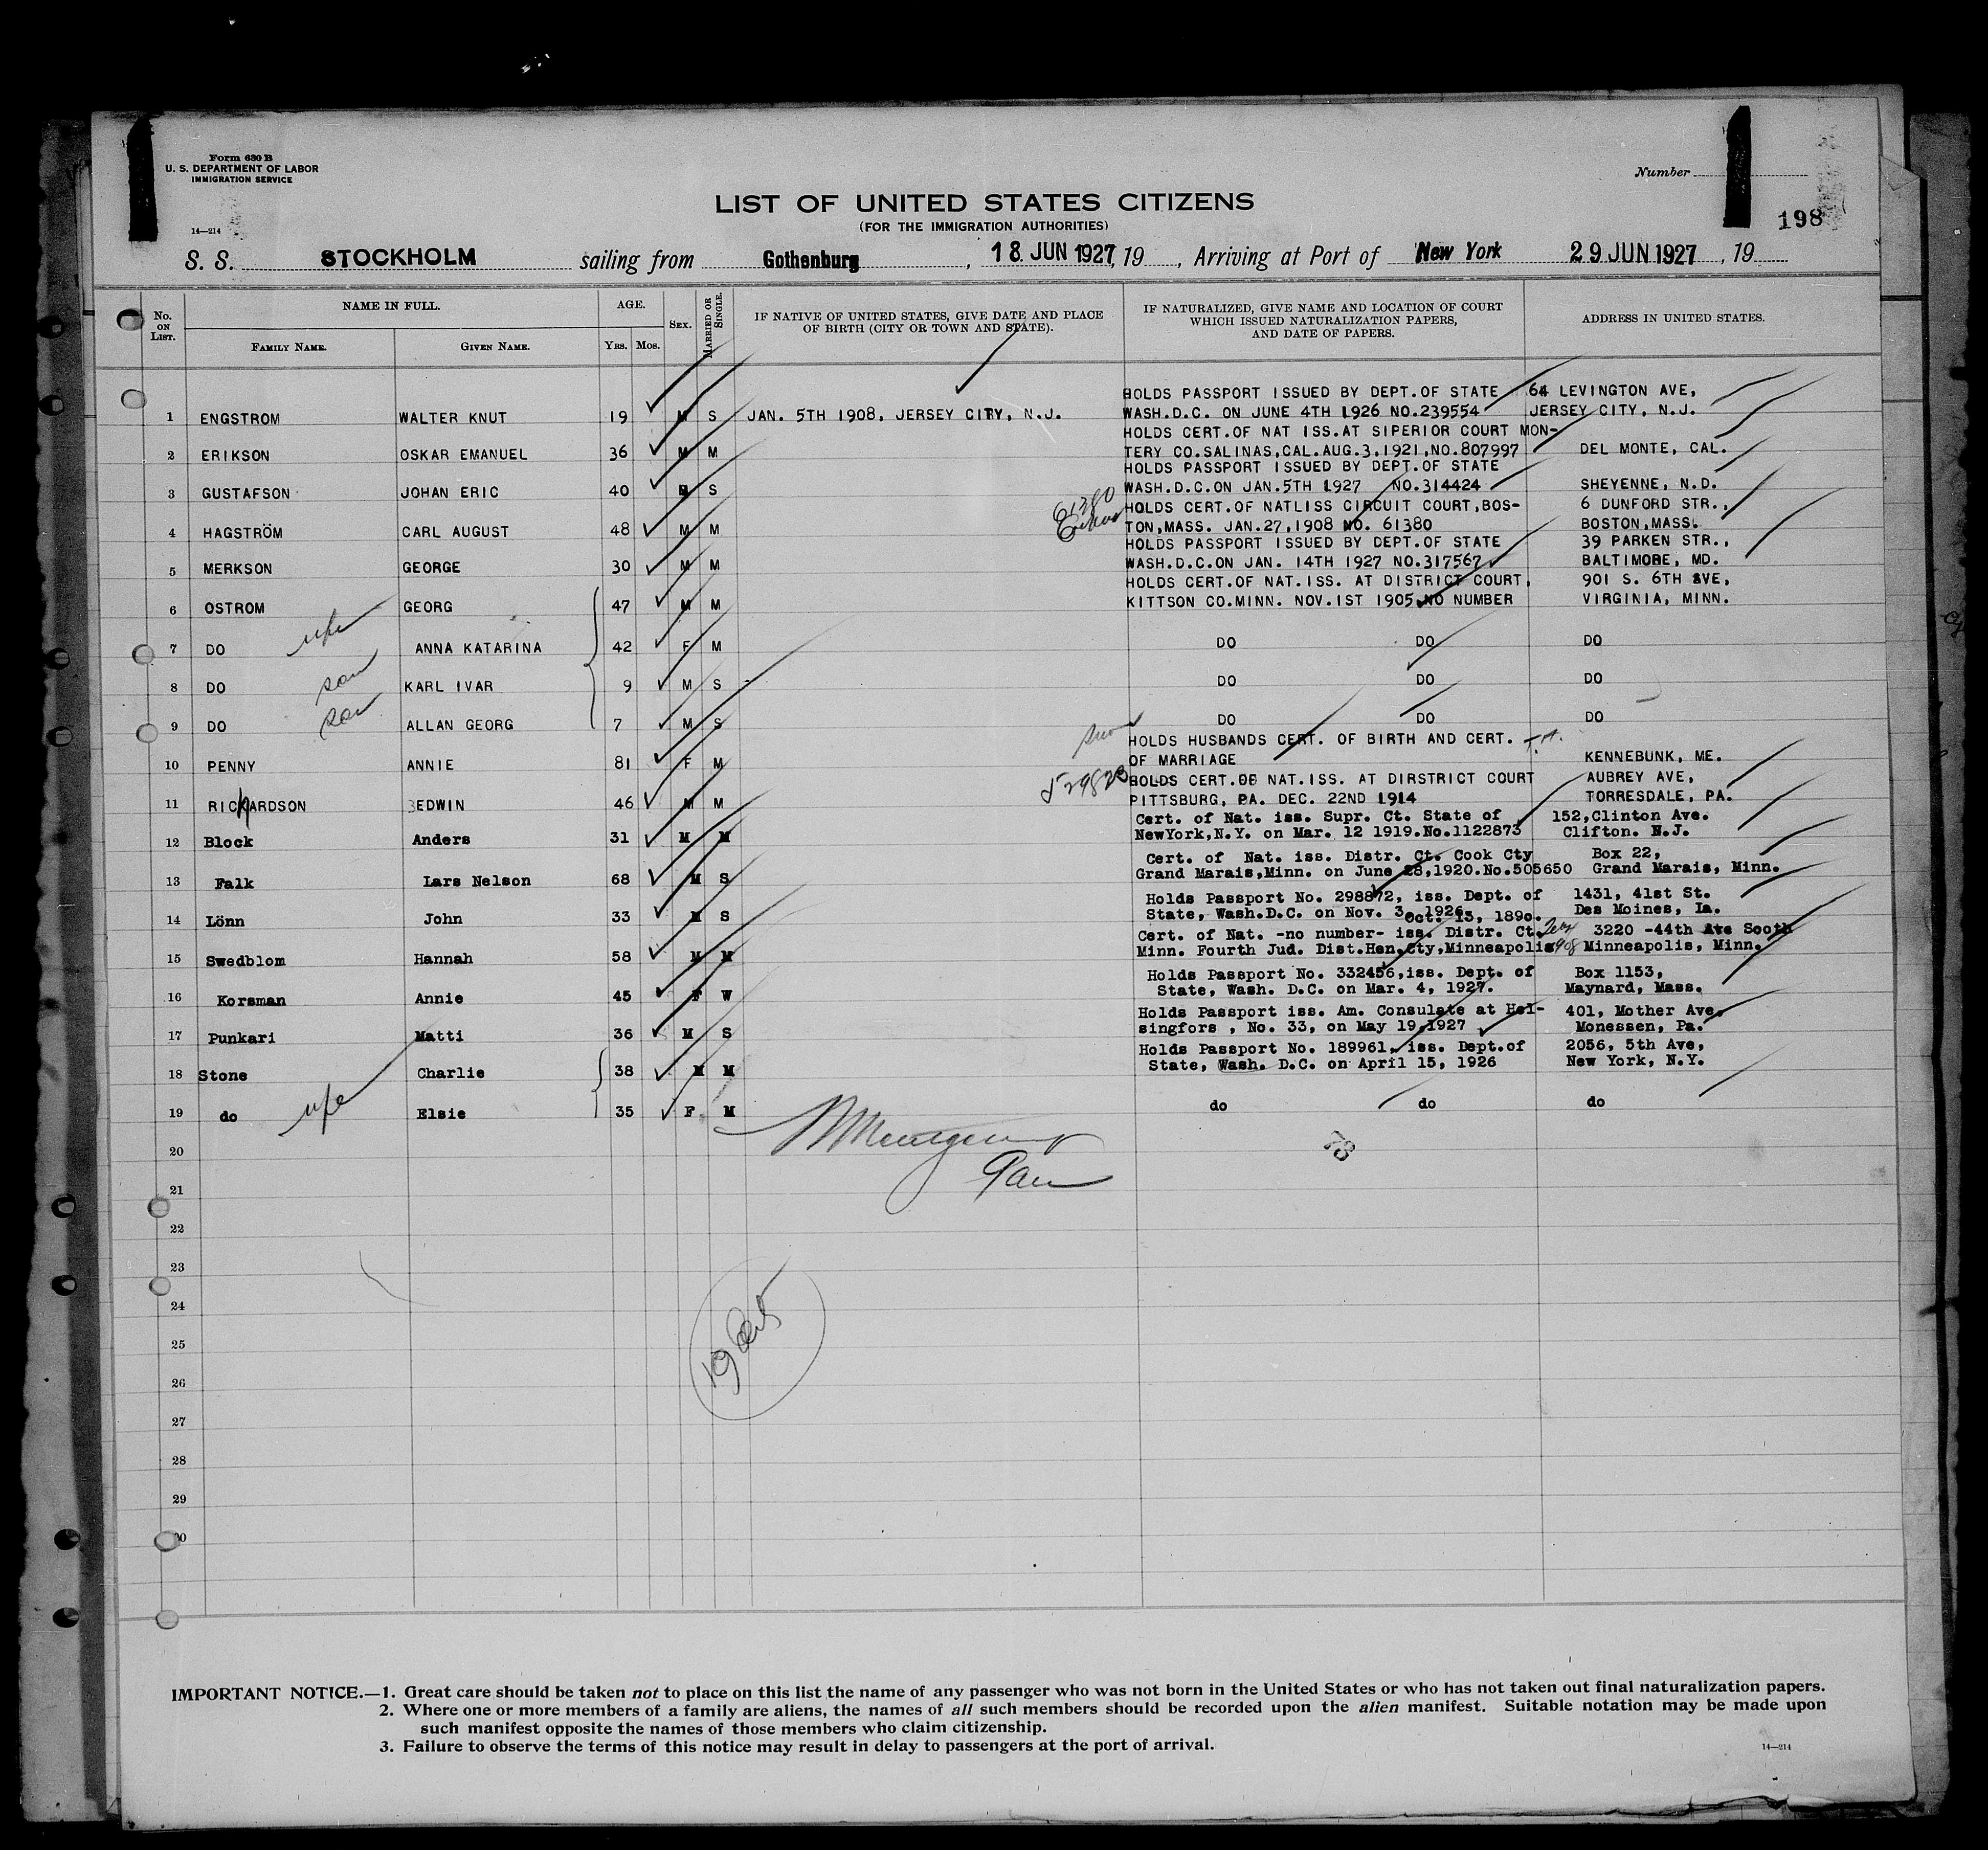 Form 630 B
U. S. DEPARTMENT OF LABOR
IMMIGRATION SERVICE
14—214
Number
198
LIST OF UNITED STATES CITIZENS
(FOR THE IMMIGRATION AUTHORITIES)
S. S. STOCKHOLM sailing from Gothenburg, 18 JUN 1927, 19 , Arriving at Port of New York 29 JUN 1927, 19
No. ON LIST.
NAME IN FULL.
FAMILY NAME.
GIVEN NAME.
AGE.
YRS. MOS.
SEX.
MARRIED OR SINGLE.
IF NATIVE OF UNITED STATES, GIVE DATE AND PLACE
OF BIRTH (CITY OR TOWN AND STATE).
IF NATURALIZED, GIVE NAME AND LOCATION OF COURT
WHICH ISSUED NATURALIZATION PAPERS,
AND DATE OF PAPERS.
ADDRESS IN UNITED STATES.
HOLDS PASSPORT ISSUED BY DEPT.OF STATE 64 LEVINGTON AVE,
1 ENGSTROM WALTER KNUT 19 M S JAN. 5TH 1908, JERSEY CITY, N.J. WASH.D.C. ON JUNE 4TH 1926 NO.239554 JERSEY CITY, N.J.
HOLDS CERT.OF NAT ISS.AT SIPERIOR COURT MON-
2 ERIKSON OSKAR EMANUEL 36 M M TERY CO.SALINAS,CAL.AUG.3,1921,NO.807997 DEL MONTE, CAL.
HOLDS PASSPORT ISSUED BY DEPT.OF STATE
3 GUSTAFSON JOHAN ERIC 40 M S WASH.D.C.ON JAN.5TH 1927 NO.314424 SHEYENNE, N.D.
61380
HOLDS CERT.OF NATLISS CIRCUIT COURT,BOS- 6 DUNFORD STR.,
4 HAGSTRÖM CARL AUGUST 48 M M TON,MASS. JAN.27,1908 NO. 61380 BOSTON,MASS.
HOLDS PASSPORT ISSUED BY DEPT.OF STATE 39 PARKEN STR.,
5 MERKSON GEORGE 30 M M WASH.D.C.ON JAN. 14TH 1927 NO.317567 BALTIMORE, MD.
HOLDS CERT.OF NAT.ISS. AT DISTRICT COURT, 901 S. 6TH AVE,
6 OSTROM GEORG 47 M M KITTSON CO.MINN. NOV.1ST 1905 NO NUMBER VIRGINIA, MINN.
7 DO wife ANNA KATARINA 42 F M DO DO DO
8 DO son KARL IVAR 9 M S DO DO DO
9 DO son ALLAN GEORG 7 M S DO DO DO
HOLDS HUSBANDS CERT. OF BIRTH AND CERT.
10 PENNY ANNIE 81 F M OF MARRIAGE KENNEBUNK, ME.
529823 HOLDS CERT.OF NAT.ISS. AT DIRSTRICT COURT AUBREY AVE,
11 RICHARDSON EDWIN 46 M M PITTSBURG, PA. DEC. 22ND 1914 TORRESDALE, PA.
Cert. of Nat. iss. Supr. Ct. State of 152,Clinton Ave.
12 Block Anders 31 M M NewYork,N.Y. on Mar. 12 1919.No.1122873 Clifton. N.J.
Cert. of Nat. iss. Distr. Ct. Cook Cty Box 22,
13 Falk Lars Nelson 68 M S Grand Marais,Minn. on June 28,1920.No.505650 Grand Marais, Minn.
Holds Passport No. 298872, iss. Dept. of 1431, 41st St.
14 Lönn John 33 M S State, Wash.D.C. on Nov. 3, 1926. Des Moines, Ia.
Oct. 13, 1890.
Cert. of Nat. -no number- iss. Distr. Ct. 3220 -44th Ave South
15 Swedblom Hannah 58 M M Minn. Fourth Jud. Dist.Hen.Cty,Minneapolis Minneapolis, Minn.
Holds Passport No. 332456,iss. Dept. of Box 1153,
16 Korsman Annie 45 F W State, Wash. D.C. on Mar. 4, 1927. Maynard, Mass.
Holds Passport iss. Am. Consulate at Hel- 401, Mother Ave,
17 Punkari Matti 36 M S singfors , No. 33, on May 19,1927 Monessen, Pa.
Holds Passport No. 189961, iss. Dept.of 2056, 5th Ave,
18 Stone Charlie 38 M M State, Wash. D.C. on April 15, 1926 New York, N.Y.
19 do wife Elsie 35 F M do do do
20
73
21
22
23
24
25
26
27
28
29
30
IMPORTANT NOTICE.—1. Great care should be taken not to place on this list the name of any passenger who was not born in the United States or who has not taken out final naturalization papers.
2. Where one or more members of a family are aliens, the names of all such members should be recorded upon the alien manifest. Suitable notation may be made upon
such manifest opposite the names of those members who claim citizenship.
3. Failure to observe the terms of this notice may result in delay to passengers at the port of arrival.
14—214